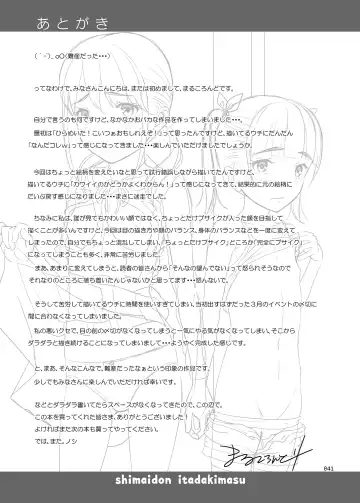 あとがき
( ´-`)_oO(難産だった・・・)
ってなわけで、みなさんこんにちは、または初めまして、まるころんどです。
自分で言うのも何ですけど、なかなかおバカな作品を作ってしまいました・・・。
最初は「ひらめいた!こいつぁおもしれえぞ!」って思ったんですけど、描いてるウチにだんだん
「なんだコレw」って感じになってきました・・・楽しんでいただけましたでしょうか。
今回はちょっと絵柄を変えたいなと思って試行錯誤しながら描いてたんですけど、
描いてるウチに「カワイイのかどうかよくわからん!」って感じになってきて、結果的に元の絵柄に
だいぶ戻す感じになりました・・・まさに迷走でした。
ちなみに私は、誰が見てもかわいい顔ではなく、ちょっとだけブサイクが入った顔を目指して
描くことが多いんですけど、今回は目の描き方や顔のバランス、身体のバランスなどを一度に変えて
しまったので、自分でもちょっと混乱してしまい、「ちょっとだけブサイク」どころか「完全にブサイク」
になってしまうことも多く、非常に苦労しました。
まあ、あまりに変えてしまうと、読者の皆さんから「そんなの望んでない」って怒られそうなので
それなりのところに落ち着いたんじゃないかと思ってます・・・怒んないで。
そうして苦労して描いてるウチに時間を使いすぎてしまい、当初出すはずだった3月のイベントの〆切に
間に合わなくなってしまいました。
私の悪いクセで、目の前の〆切がなくなってしまうと一気にやる気がなくなってしまい、そこから
ダラダラと描き続けることになってしまいまして・・・ようやく完成した感じです。
と、まあ、そんなこんなで、難産だったなぁという印象の作品です。
少しでもみなさんに楽しんでいただければ幸いです。
などとダラダラ書いてたらスペースがなくなってきたので、この辺で。
この本を買ってくれた皆さま、ありがとうございました!
よければまた次の本も買ってやってください。
では、また。ノシ
まるころんど
041
shimaidon itadakimasu